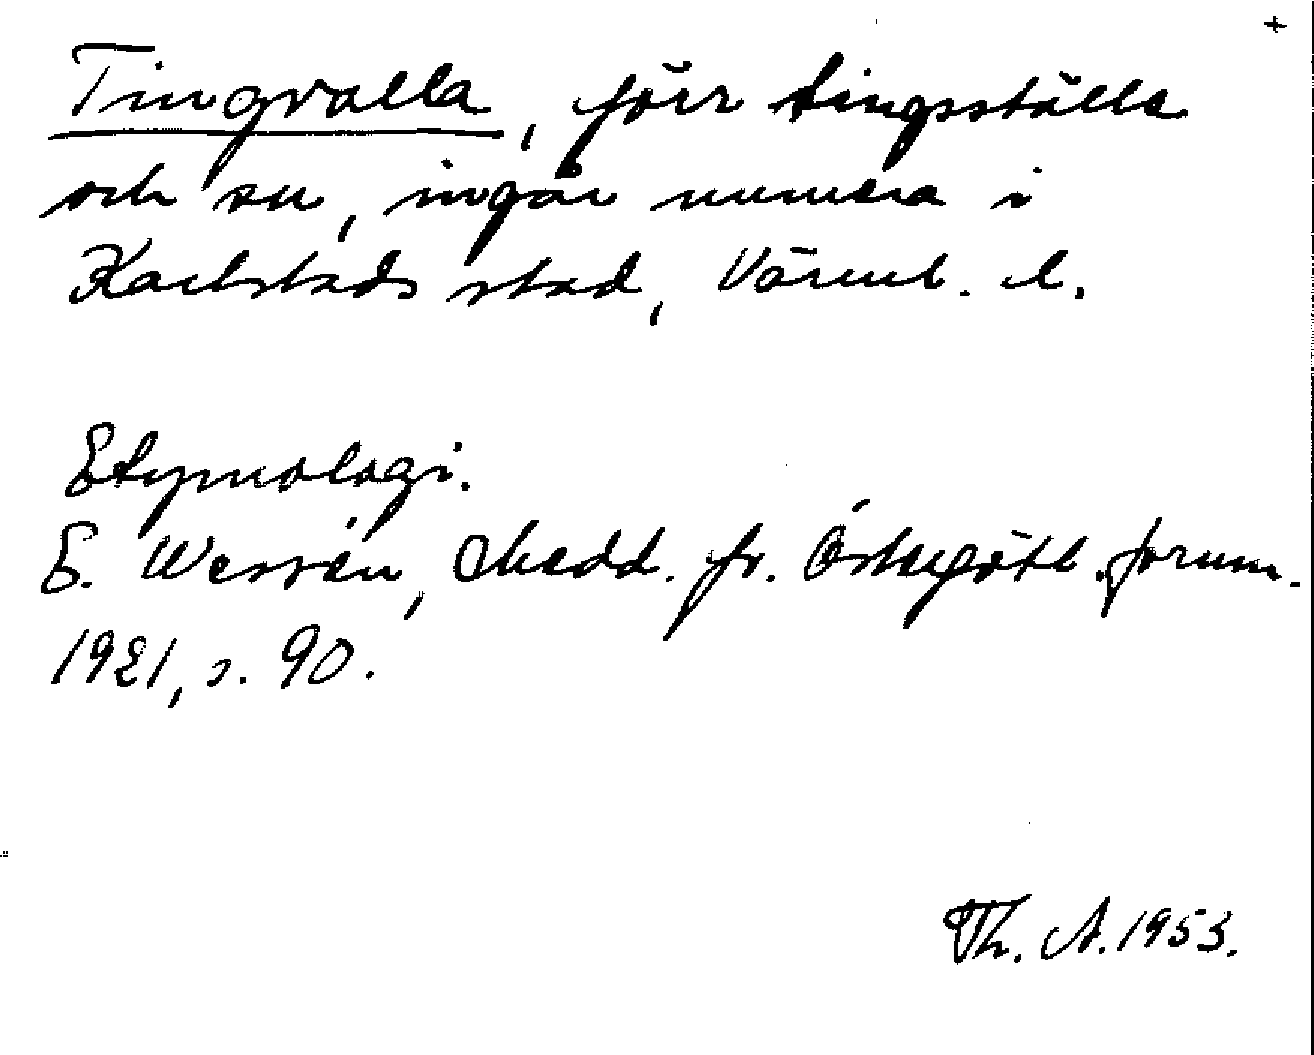 +
Tingvalla, förr tingsställe
och sn, ingår numera i
Karlstads stad, Värml. l.
Etymologi.
E. Wessén, Medd. fr. Östergötl. fornm.
1921, s. 90.
Th. A. 1953.